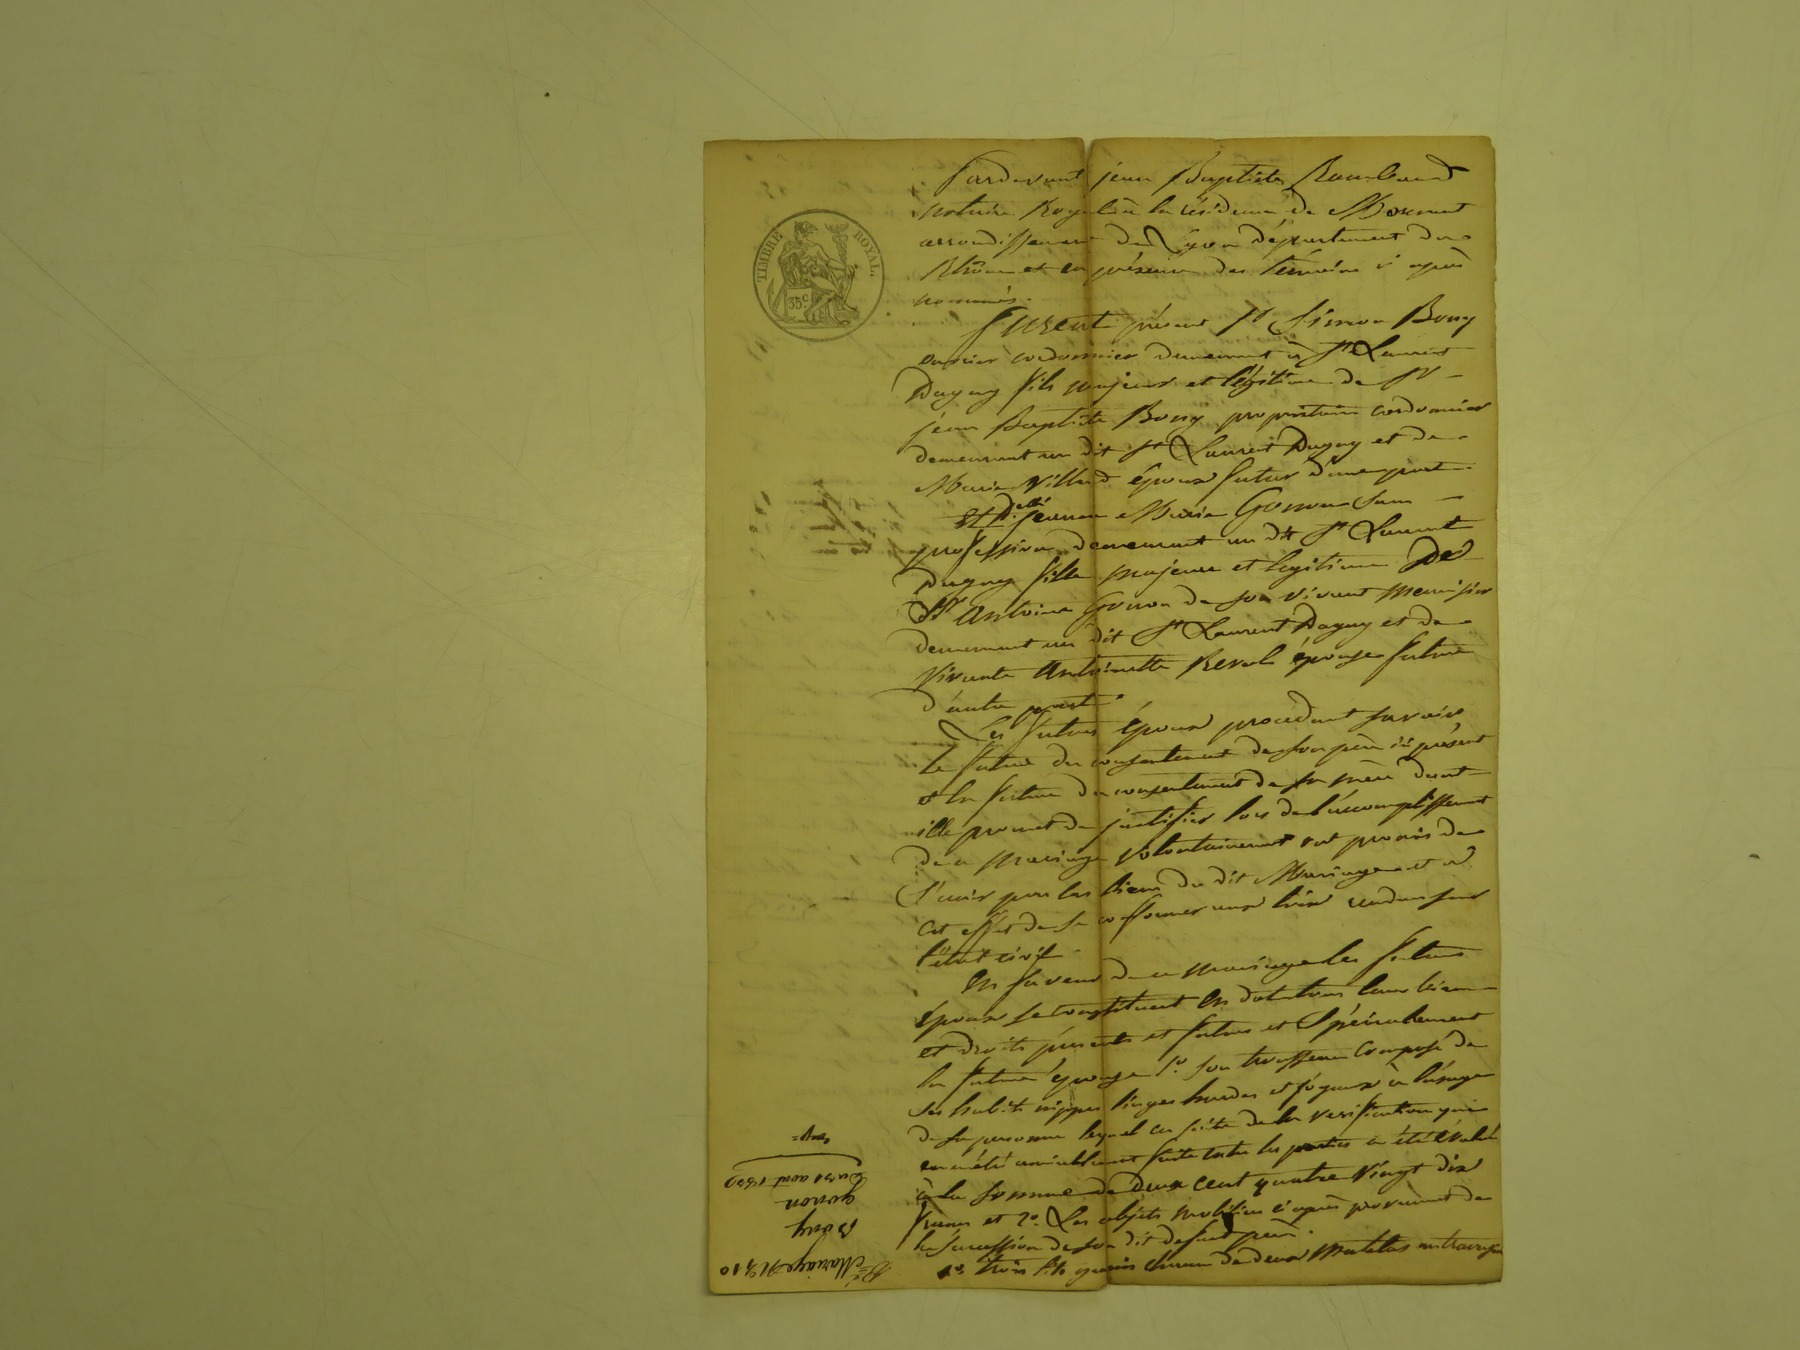 TIMBRE ROYAL.
35c
Pardevant jean Baptiste Rambaud
notaire Royal à la résidence de Mornant
arrondissement de Lyon département du
Rhône et en présence des témoins ci après
nommés.
Furent présent Sr Simon Bony
ouvrier cordonnier demeurant à St Laurent
Dagny fils majeur et légitime de Sr
jean Baptiste Bony propriétaire cordonnier
demeurant au dit St Laurent Dagny et de
Marie Villard époux futur d'une part
Et Delle jeanne Marie Gonon sans
profession demeurant au dit St Laurent
Dagny fille majeure et legitime De
Sr Antoine Gonon de son vivant menuisier
demeurant au dit St Laurent Dagny et de
vivante Antoinette Revol épouse future
d'autre part
Les futurs époux procédant savoir
le futur du consentement de son père ici présent
et la future du consentement de sa mère dont
elle promet de justifier lors de l'accomplissement
de ce mariage volontairement ont promis de
s'unir par les liens du dit Mariage et à
cet effet de se conformer aux loix rendues sur
l'état civil
En faveur de ce mariage les futurs
époux se constituent en dot tous leurs biens
et droits présents et futurs et Spécialement
la future épouse 1o son trousseau Composé de
ses habits nippes linges hardes et joyaux à l'usage
de sa personne lequel en suite de la verification qui
en a été amiablement faite entre les parties a été évalué
à la somme de deux cent quatre vingt dix
francs et 2o Les objets mobiliers ci après provenant de
la succession de son dit defunt père
1o trois lits garnis chacun de deux matelas un traversin
Mariage No 210
Bony
gonon
Du 31 aout 1830